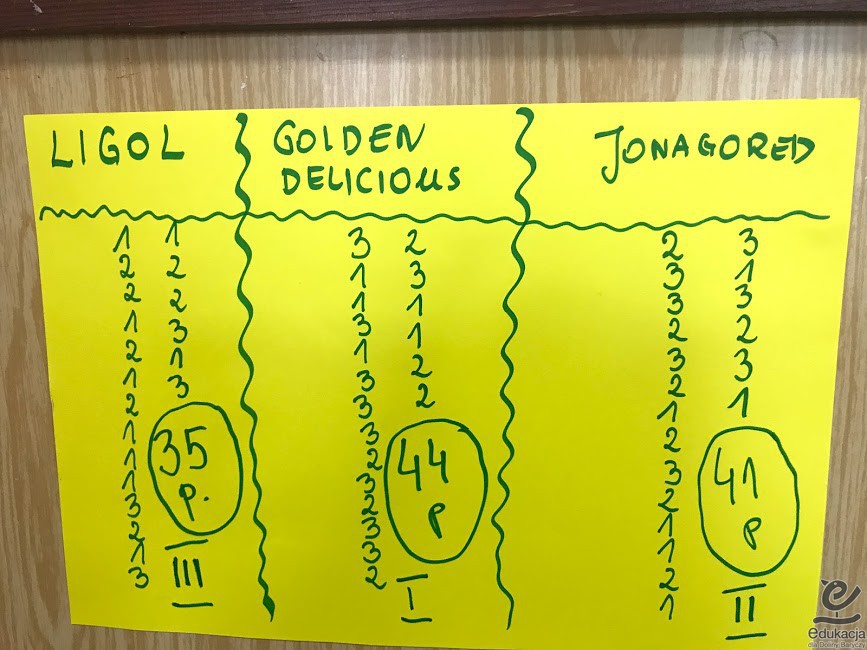 LIGOL
1 1
2 2
2 2
1 3
2 1
1 3
2
1
1
1
3
2
1
3
35
p.
III
GOLDEN
DELICIOUS
3 2
1 3
1 1
3 1
1 2
3 2
3
3
2
3
2
3
3
2
44
p
I
JONAGORED
2 3
3 1
3 3
2 2
3 3
2 1
1
2
3
2
1
1
2
1
41
p
II
edukacja
dla Doliny Baryczy